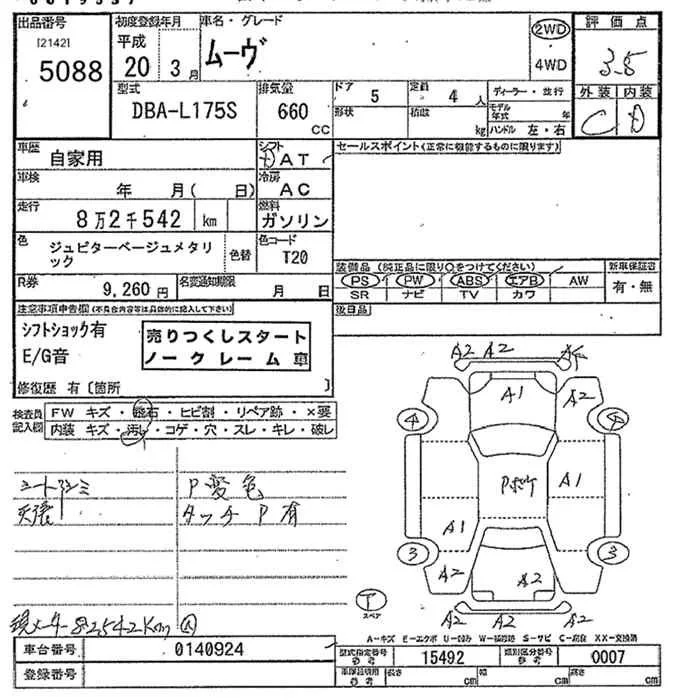 出品番号
[2142]
5088
初度登録年月
平成
20年 3月
車名・グレード
ムーヴ
2WD
4WD
評価点
3.5
外装 内装
C D
型式
DBA-L175S
排気量
660
CC
ドア
5
定員
4 人
形状
積載
kg
ディーラー・並行
モデル年式 年
ハンドル 左・右
車歴
自家用
シフト
AT
車検
年 月( 日)
冷房
AC
走行
8万2千542 km
燃料
ガソリン
色
ジュピターベージュメタリック
色替
色コード
T20
R券
9,260円
名変通知期限
月 日
セールスポイント(正常に機能するものに限ります)
装備品 (純正品に限り○をつけてください)
PS PW ABS エアB AW
SR ナビ TV カワ
新車保証書
有・無
後日品
注意事項申告欄(不具合内容等は具体的に記入して下さい)
シフトショック有
E/G音
売りつくしスタート
ノークレーム車
修復歴 有 〔箇所 〕
検査員記入欄
FW キズ・飛石・ヒビ割・リペア跡・×要
内装 キズ・汚れ・コゲ・穴・スレ・キレ・破レ
シートシミ
天張
P変色
タッチP有
現メーター82542Km
A2 A2
A1
A2
4
Pボケ
A1
A1
3
3
A2
A2
A2
A2
T
スペア
A-キズ E-エクボ U-凹み W-補修跡 S-サビ C-腐食 XX-交換済
車台番号
0140924
登録番号
型式指定番号
参考
15492
類別区分番号
参考
0007
車庫証明用
参考
長さ cm
幅 cm
高さ cm